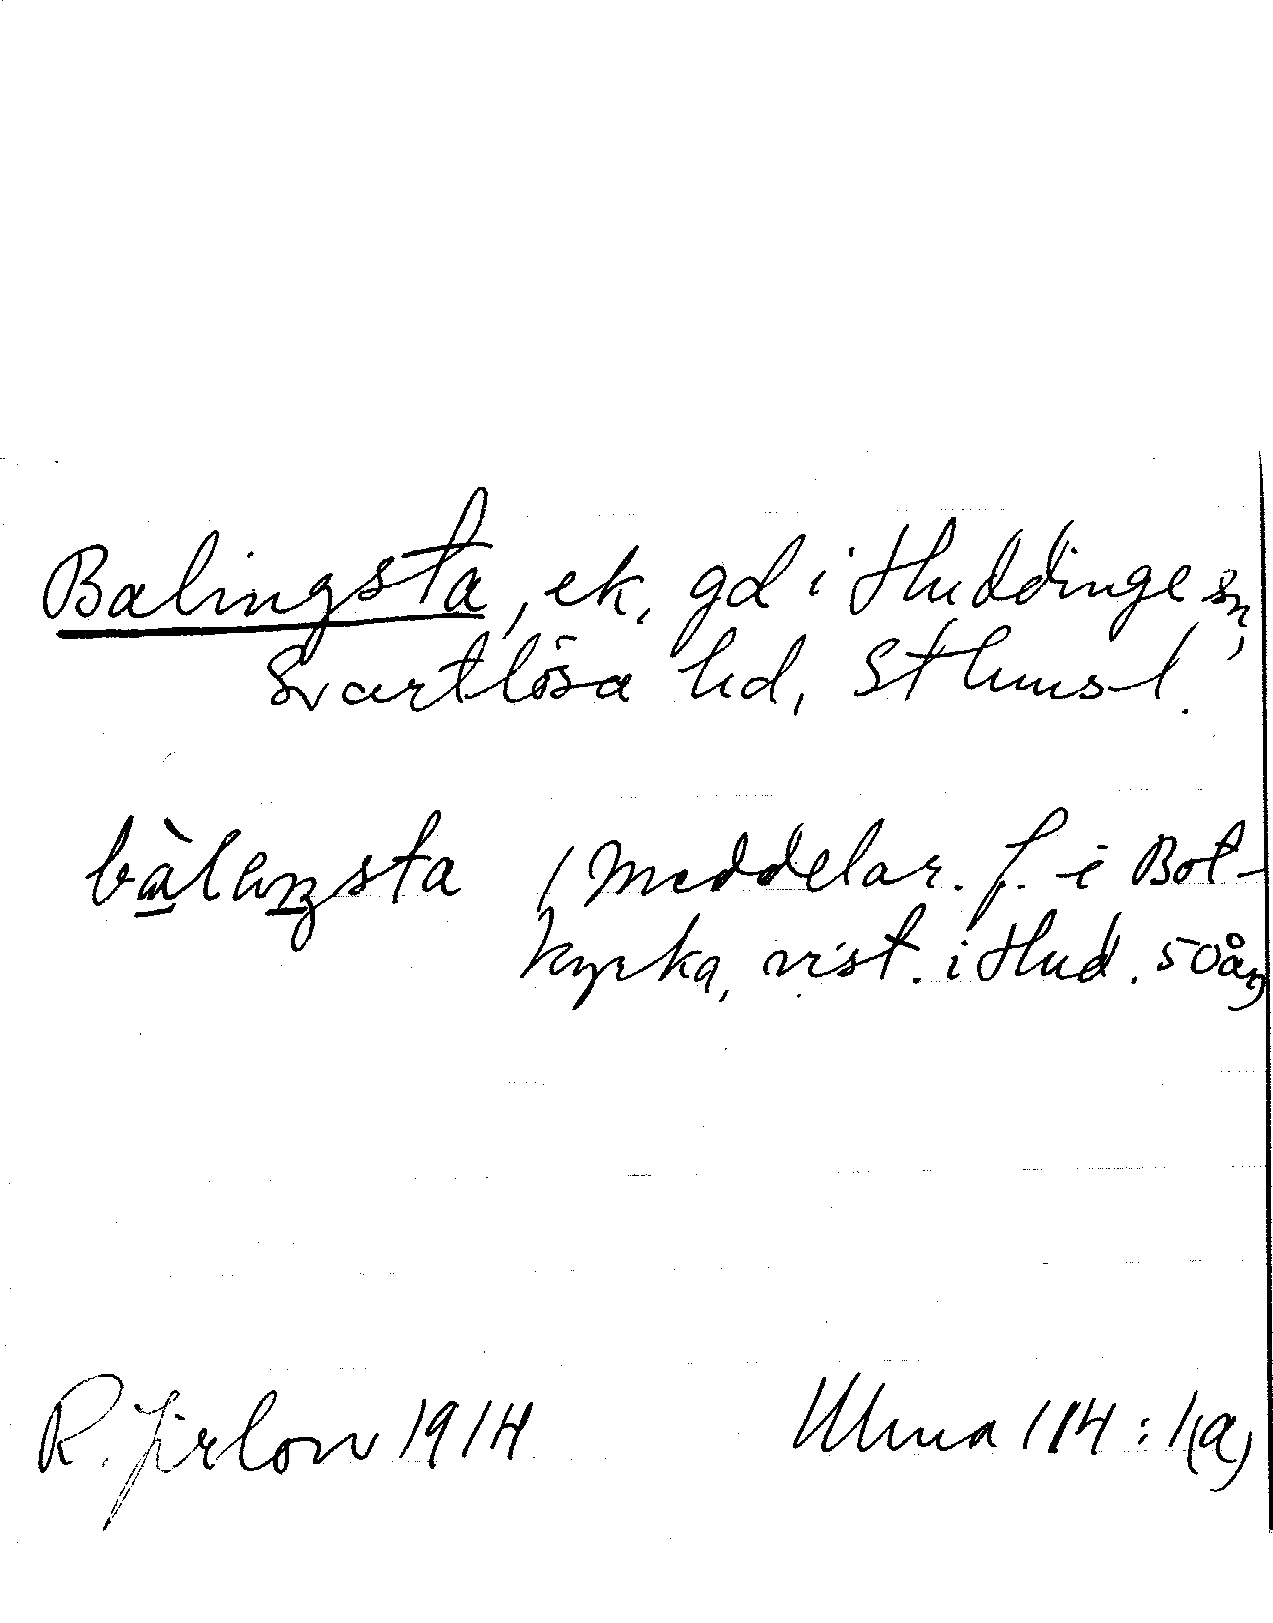 Balingsta, ek. gd i Huddinge sn,
Svartlösa hd, Sthms l.
bàleŋsta (Meddelar. f. i Bot-
kyrka, vist. i Hud. 50 år)
R. Jirlow 1914 Ulma 114:1(a)